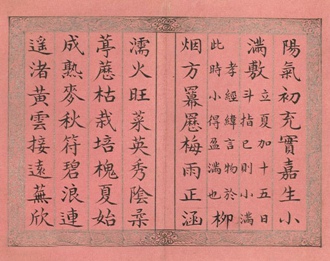 陽氣初充實嘉生小
滿敷立夏加十五日
斗指巳則小滿
孝經緯言物於
此時小得盈滿也柳
烟方羃䍥梅雨正涵
濡火旺菜英秀陰柔
枯栽培槐夏始
成熟麥秋符碧浪連
遙渚黃雲接遠蕪欣